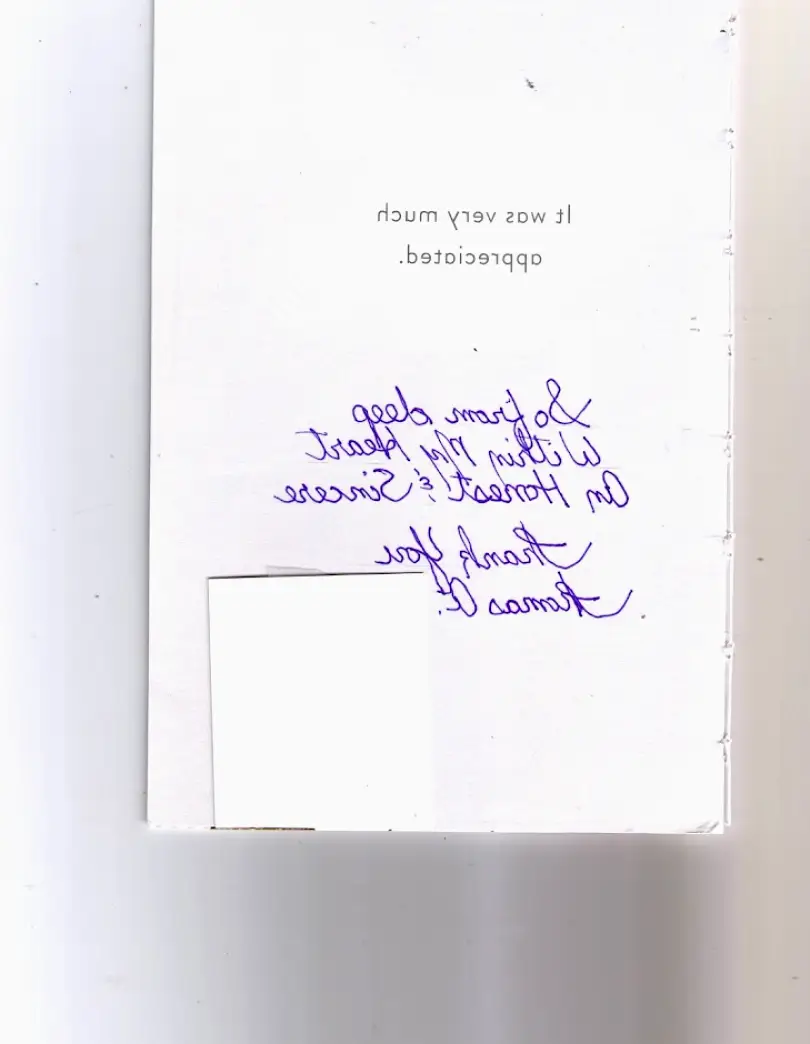 It was very much
appreciated.
So from deep
Within My Heart
An Honest & Sincere
Thank You
Thomas A.